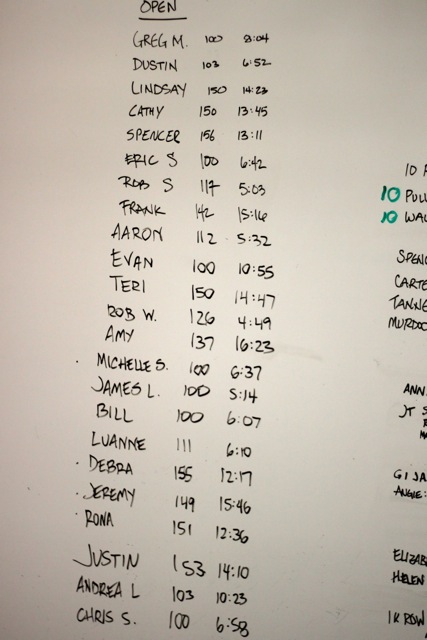 OPEN
GREG M. 100 8:04
DUSTIN 103 6:52
LINDSAY 150 14:23
CATHY 150 13:45
SPENCER 156 13:11
ERIC S 100 6:42
ROB S 117 5:03
FRANK 142 15:16
AARON 112 5:32
EVAN 100 10:55
TERI 150 14:47
ROB W. 126 4:49
AMY 137 16:23
MICHELLE S. 100 6:37
JAMES L. 100 5:14
BILL 100 6:07
LUANNE 111 6:10
DEBRA 155 12:17
JEREMY 149 15:46
RONA 151 12:36
JUSTIN 153 14:10
ANDREA L 103 10:23
CHRIS S. 100 6:58
10 P
10 PULL
10 WAL
SPENC
CARTE
TANNE
MURDOC
ANN
JT S
GI JA
ANGIE:
ELIZAB
HELEN
1K ROW